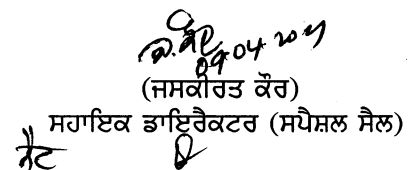 09 04 2021
(ਜਸਕੀਰਤ ਕੌਰ)
ਸਹਾਇਕ ਡਾਇਰੈਕਟਰ (ਸਪੈਸ਼ਲ ਸੈਲ)
ਨੈਟ